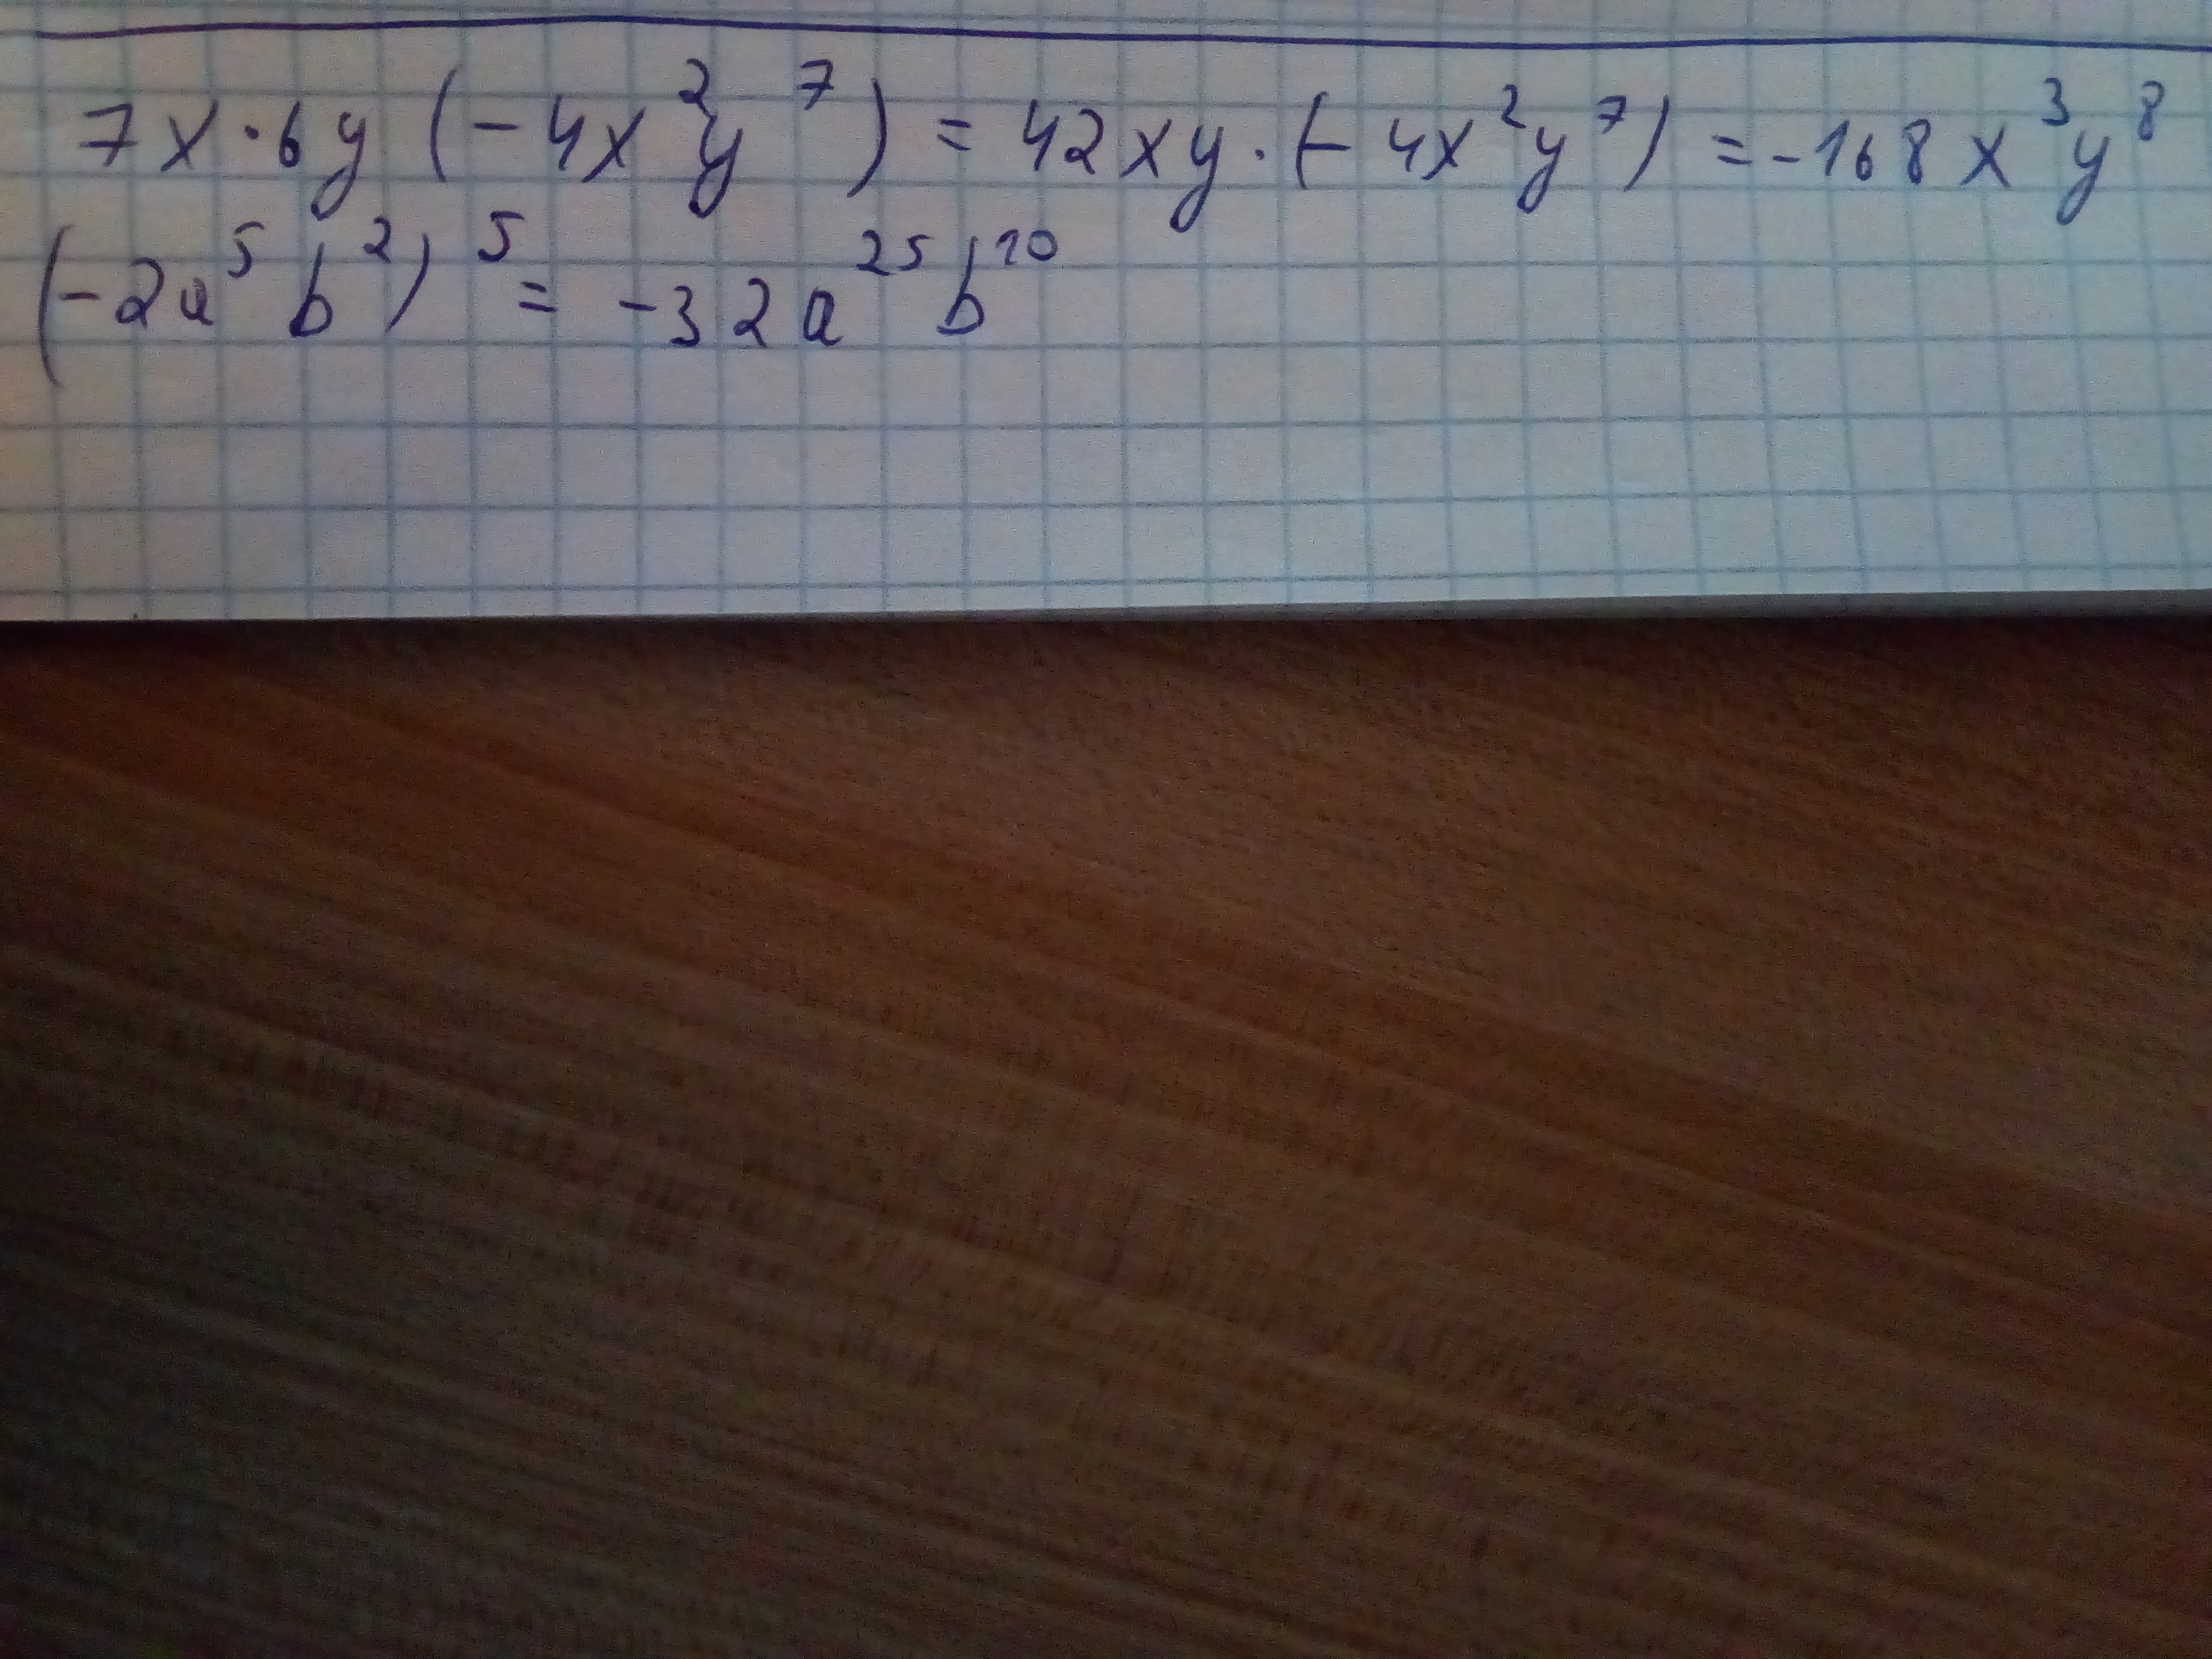 7x·6y(-4x²y⁷) = 42xy·(-4x²y⁷) = -168x³y⁸
(-2a⁵b²)⁵ = -32a²⁵b¹⁰